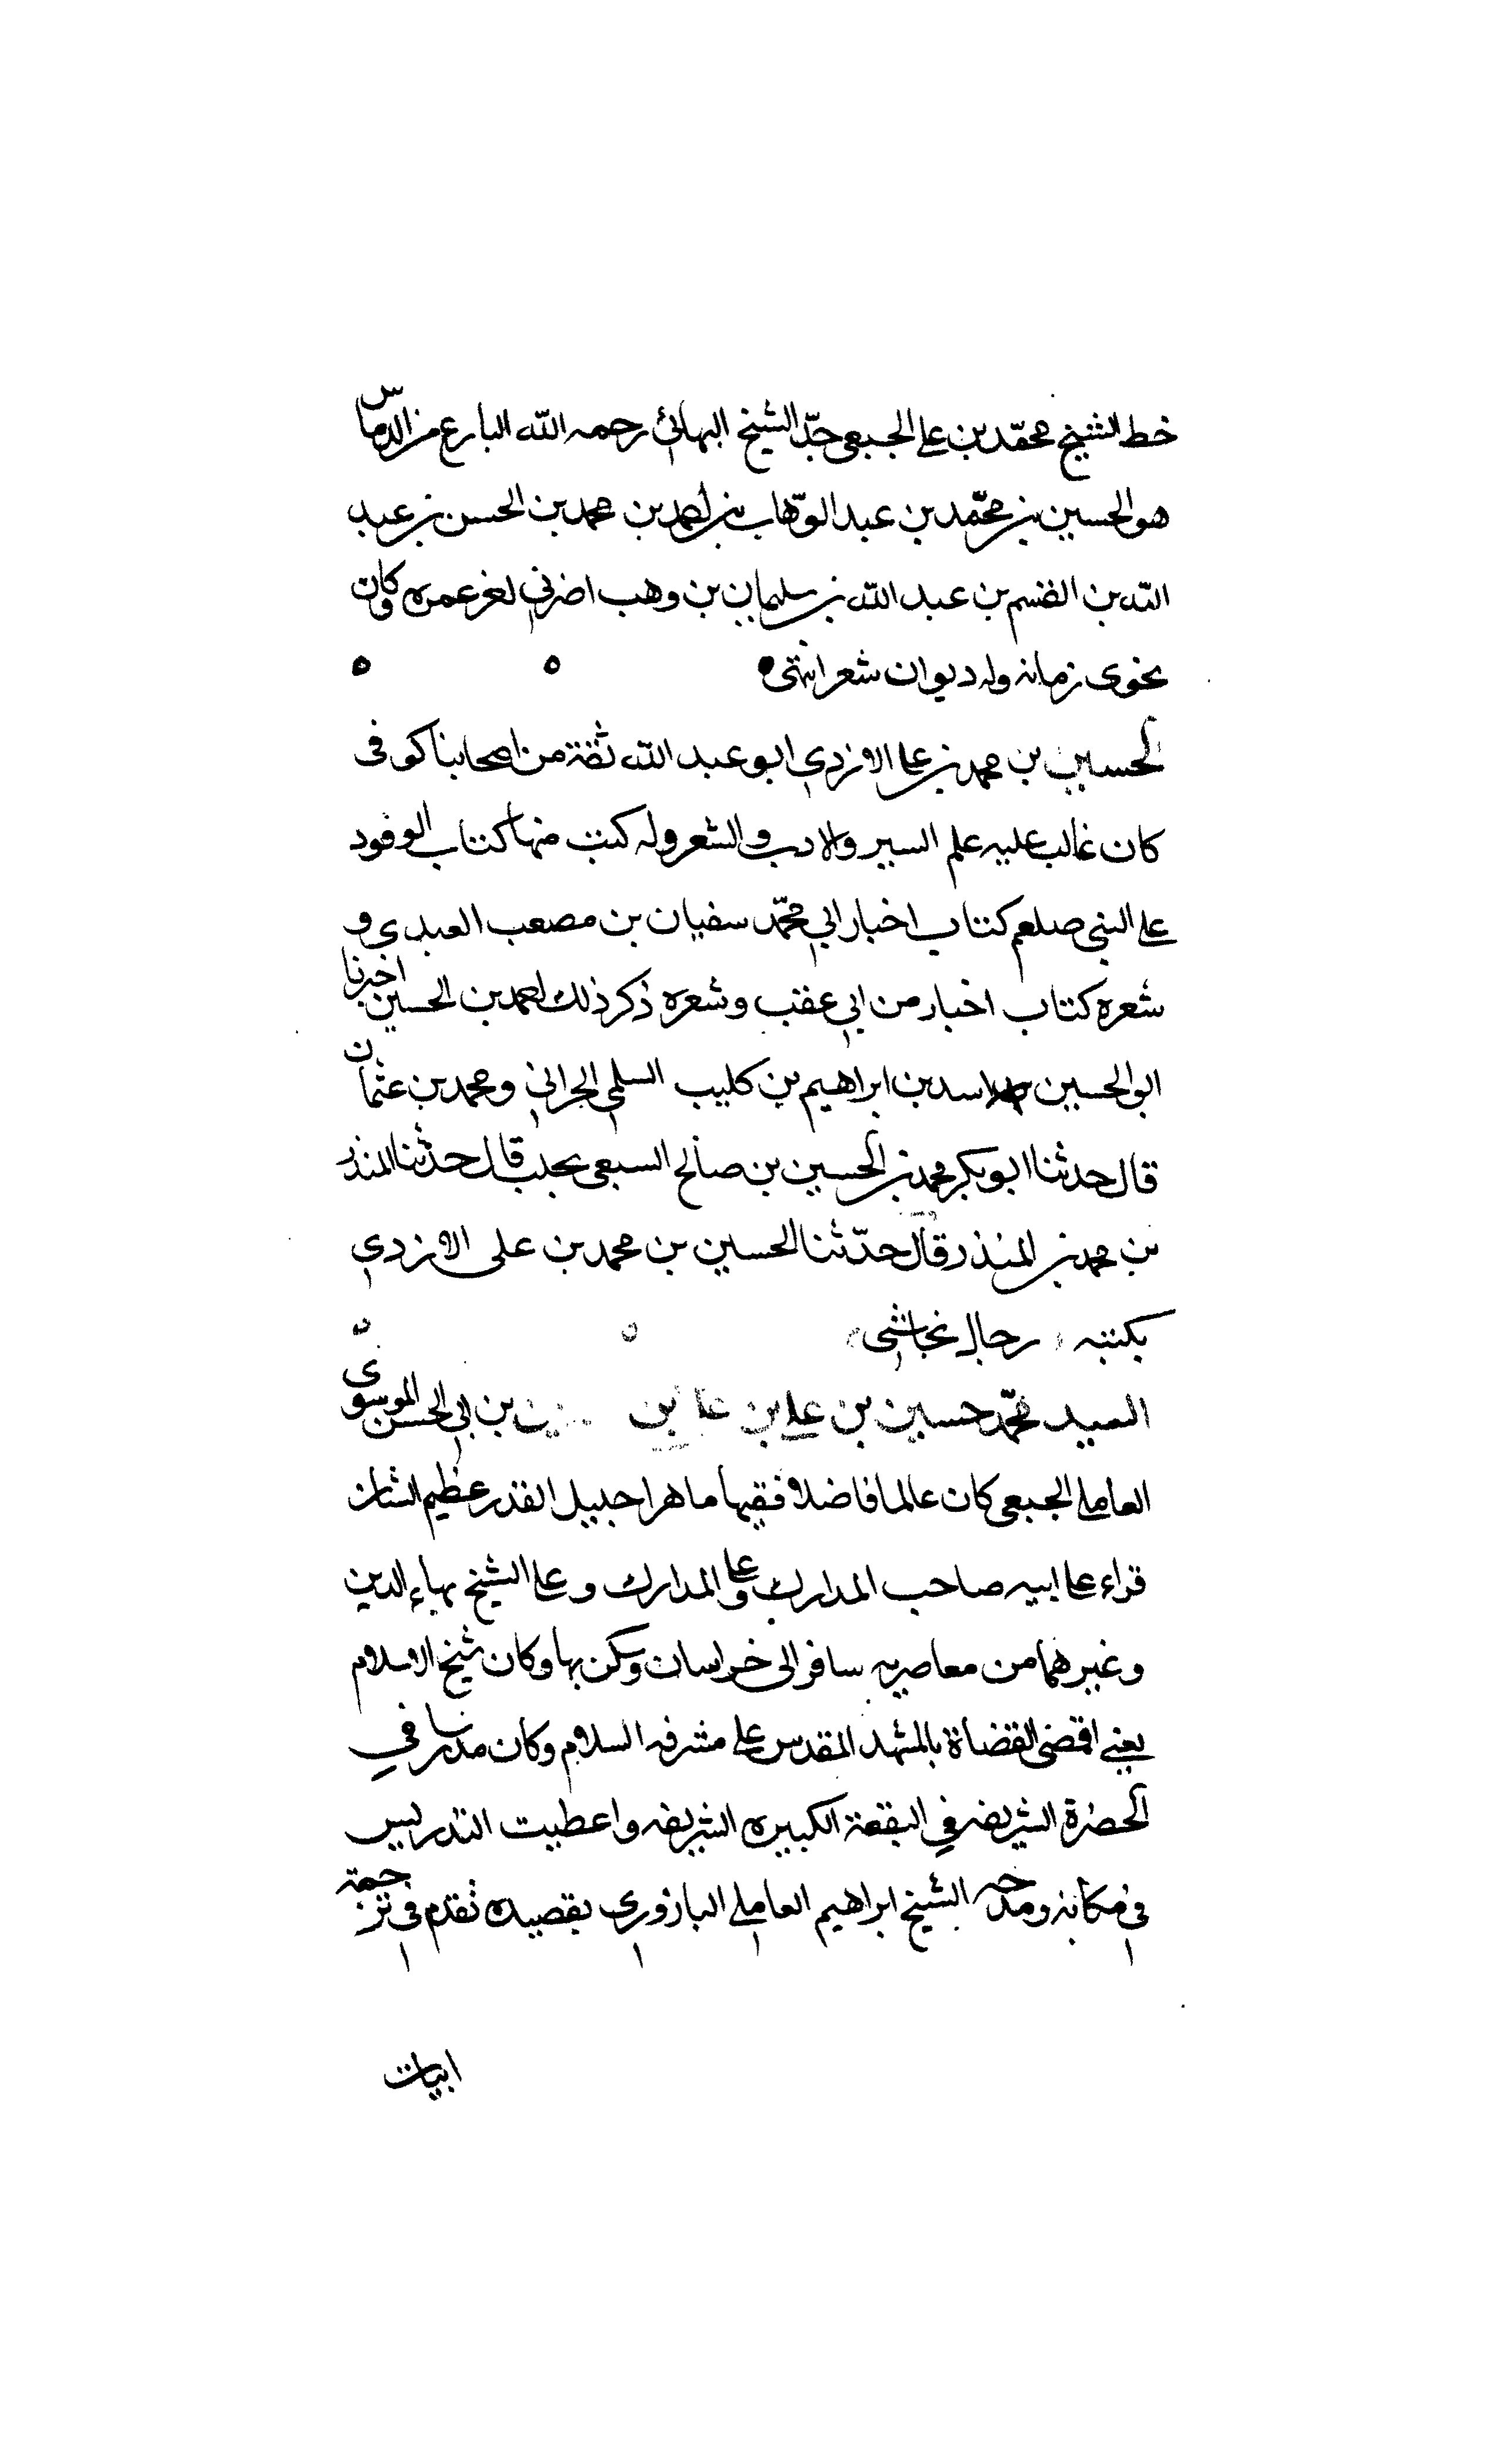 خط الشيخ محمّد بن على الجبعى جدّ الشيخ البهائى رحمه الله البارع من الدماس
هو الحسين بن محمّد بن عبد الوّهاب بن احمد بن محمد بن الحسن بن عبيد
الله بن القسم بن عبد الله بن سليمان بن وهب اضر فى اخر عمره وكان
نحوى زمانه وله ديوان شعر انتهى
الحسين بن محمد بن على الازدي ابو عبد الله ثقة من اصحابنا كوفى
كان غالب عليه علم السير والادب والشعر وله كتب منها كتاب الوفود
على النبى صلعم كتاب اخبار ابي محمّد سفيان بن مصعب العبدي و
شعره كتاب اخبار من ابي عقب وشعره ذكر ذلك احمد بن الحسين اخبرنا
ابو الحسين اسد بن ابراهيم بن كليب السلمى الحرانى ومحمد بن عثمان
قال حدثنا ابو بكر محمد بن الحسين بن صالح السبعى بحلب قال حدثنا المنذر
بن محمد بن المنذر قال حدّثنا الحسين بن محمد بن على الازدي
بكتبه رجال نجاشى
السيد محمّد حسين بن على بن على بن بن ابي الحسن الموسوى
العاملى الجبعى كان عالما فاضلا فقيها ماهرا جليل القدر عظيم الشان
قراء على ابيه صاحب المدارك وعلى المدارك وعلى الشيخ بهاء الدين
وغيرهما من معاصريه سافر الى خراسان وسكن بها وكان شيخ الاسلام
يعنى اقضى القضاة بالمشهد المقدس على مشرفه السلام وكان مدرسا في
الحضرة الشريفه في البقعة الكبيره الشريفه واعطيت التدريس
فى مكانه ومدحه الشيخ ابراهيم العاملى البازوري بقصيده تقدم فى ترجمته
ابيات